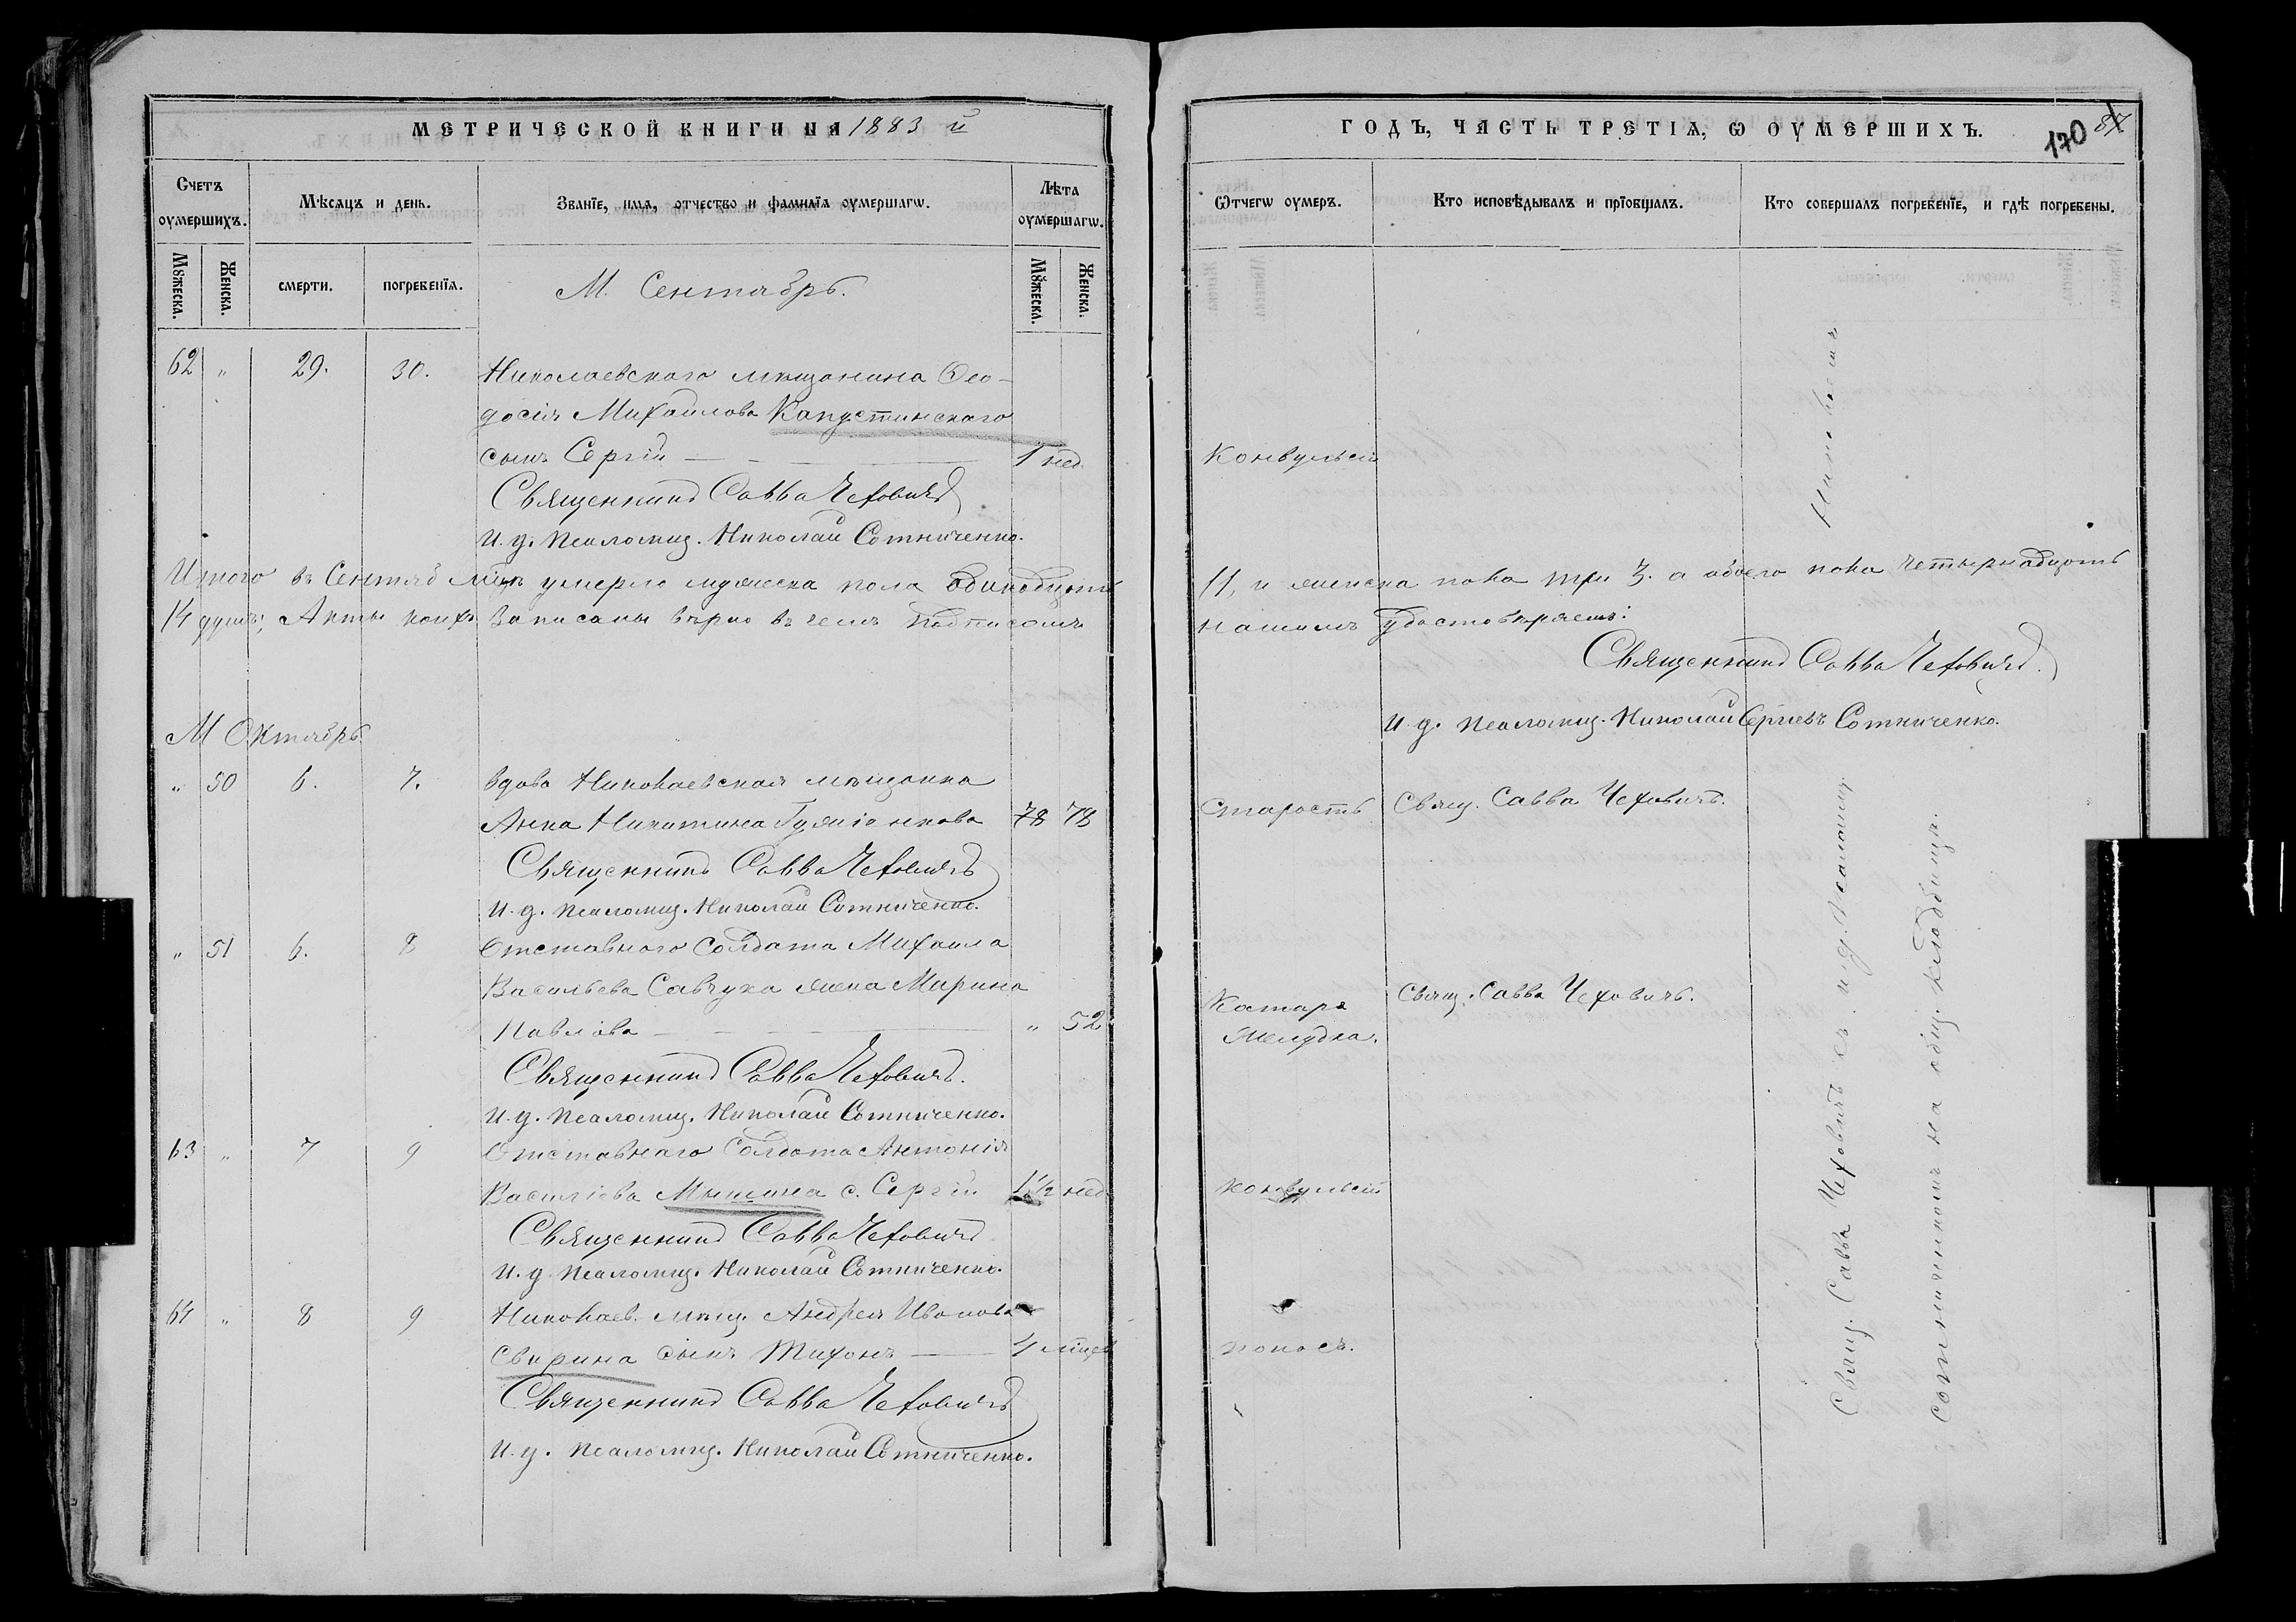 МЕТРИЧЕСКОЙ КНИГИ НА 1883 й
ГОДЪ, ЧАСТЬ ТРЕТІѦ, Ѡ ОУМЕРШИХЪ.
170 87
Счетъ оумершихъ.
Мѣсяцъ и день.
Званїе, имя, отчество и фамилїя оумершагѡ.
Лѣта оумершагѡ.
Ѿчегѡ оумеръ.
Кто исповѣдывалъ и прїобщалъ.
Кто совершалъ погребенїе, и гдѣ погребены.
Мꙋжеска.
Женска.
смерти.
погребенїя.
Мꙋжеска.
Женска.
М. Сентябрь.
62 " 29. 30. Николаевского мѣщанина Ѳео-
досія Михайлова Капустинскаго
сынъ Сергій — 1 нед. Конвульсій
Священникъ Савва Чеховичъ
И. д. Псаломщ. Николай Сотниченко.
Итого въ Сентяб мцѣ умерло мужеска пола одинадцать 11, и женска пола три 3. а обоего пола четырнадцать
14 душъ; Акты коихъ записаны вѣрно въ чемъ подписомъ нашимъ удостовѣряемъ:
Священникъ Савва Чеховичъ.
И. д. Псаломщ. Николай Сергіевъ Сотниченко.
М Октябрь.
" 50 6. 7. вдова Николаевская мѣщанка
Анна Никитина 78 78 Старость Свящ. Савва Чеховичъ.
Священникъ Савва Чеховичъ
И. д. Псаломщ. Николай Сотниченко.
" 51 6. 8 Отставного солдата Михаила
Васильева Савчука жена Марина
Павлова — " 52 Катаръ желудка. Свящ. Савва Чеховичъ.
Священникъ Савва Чеховичъ.
И. д. Псаломщ. Николай Сотниченко.
63 " 7 9 Отставнаго Солдата Антонія
Василіева с. Сергій 1 1/2 нед. конвульсій
Священникъ Савва Чеховичъ
И. д Псаломщ. Николай Сотниченко.
64 " 8 9 Николаев. мѣщ. Андрея Иванова
Свирина сынъ Тихонъ — 4 мцев поносъ.
Священникъ Савва Чеховичъ
И. д. Псаломщ. Николай Сотниченко.
Свящ. Савва Чеховичъ съ и. д. Псаломщ. Николаемъ
Сотниченкомъ на общ. кладбищѣ.